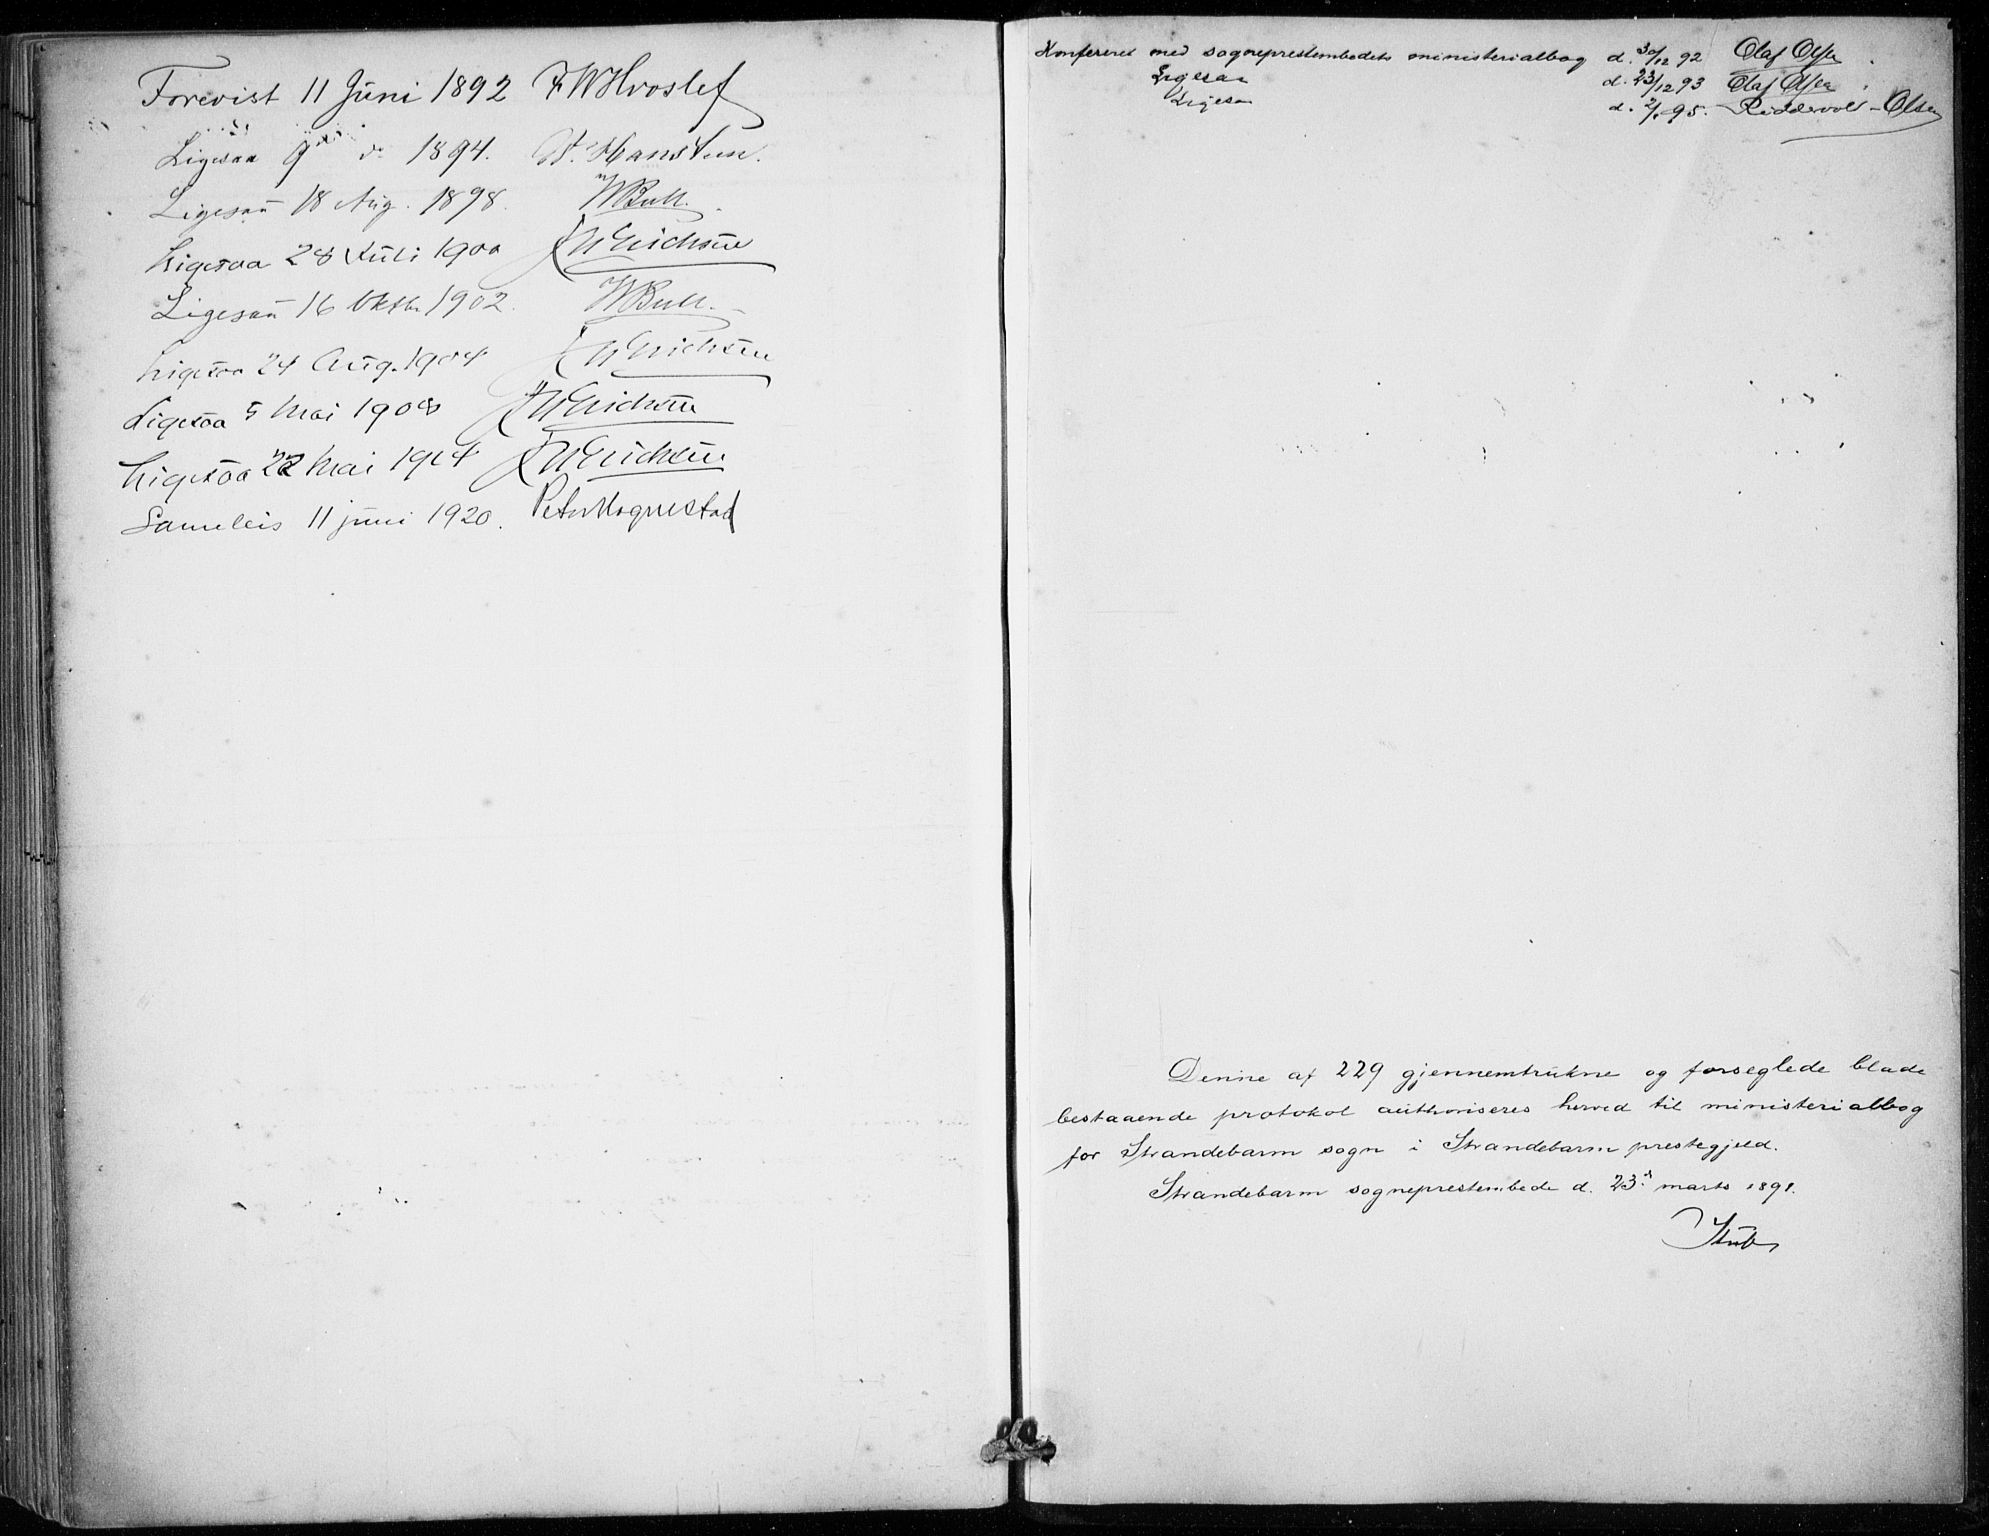 Forevist 11 Juni 1892 F W Hvoslef
Ligesaa 9de do 1894. B. Hansteen.
Ligesaa 18 Aug. 1898. W Bull.
Ligesaa 28 Juli 1900 J W Erichsen
Ligesaa 16 Oktbr 1902. W Bull.
Ligesaa 24 Aug. 1904 J W Erichsen
Ligesaa 5 Mai 1908 J W Erichsen
Ligesaa 22 Mai 1914 J W Erichsen
Sameleis 11 juni 1920. Peter Hognestad
Konfereret med sogneprestembedets ministerialbog d. 30/12 92 Olaf Olsen
Ligesaa d. 23/12 93 Olaf Olsen
Ligesaa d. 2/1 95. Riddervold-Olsen
Denne af 229 gjennemtrukne og forseglede blade
bestaaende protokol authoriseres herved til ministerialbog
for Strandebarm sogn i Strandebarm prestegjeld.
Strandebarm sogneprestembede d. 23d marts 1891.
Stub